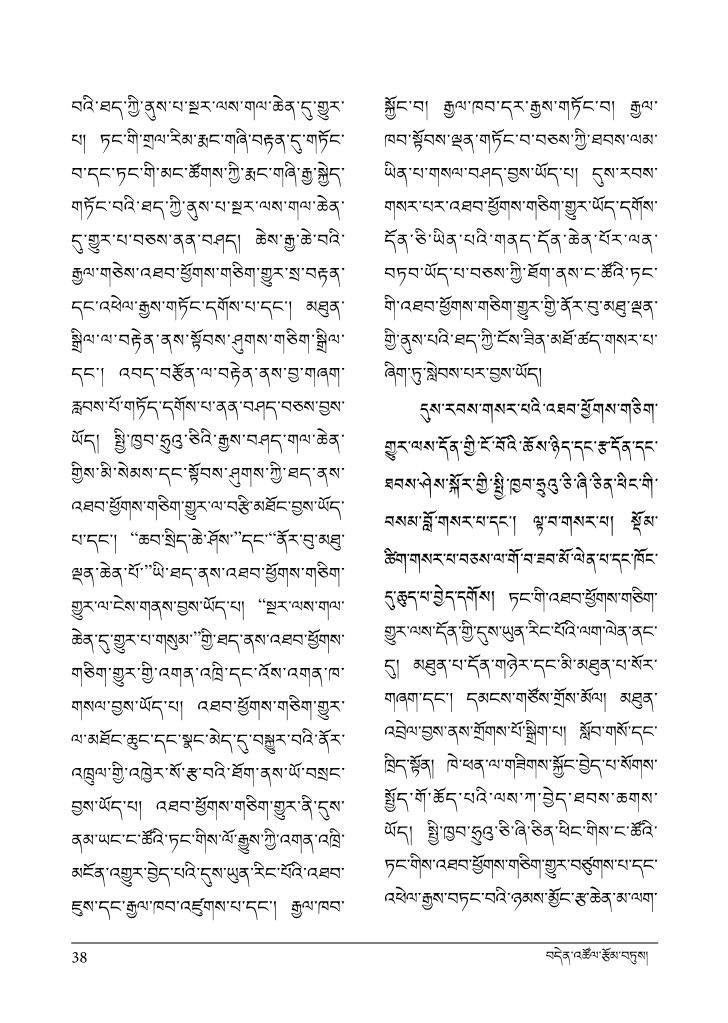 བའི་ཐད་ཀྱི་ནུས་པ་སྔར་ལས་གལ་ཆེན་དུ་གྱུར་
པ། ཏང་གི་གྲལ་རིམ་རྨང་གཞི་བརྟན་དུ་གཏོང་
བ་དང་ཏང་གི་མང་ཚོགས་ཀྱི་རྨང་གཞི་རྒྱ་སྐྱེད་
གཏོང་བའི་ཐད་ཀྱི་ནུས་པ་སྔར་ལས་གལ་ཆེན་
དུ་གྱུར་པ་བཅས་ནན་བཤད། ཆེས་རྒྱ་ཆེ་བའི་
རྒྱལ་གཅེས་འཐབ་ཕྱོགས་གཅིག་གྱུར་སྲ་བརྟན་
དང་འཕེལ་རྒྱས་གཏོང་དགོས་པ་དང་། མཐུན་
སྒྲིལ་ལ་བརྟེན་ནས་སྟོབས་ཤུགས་གཅིག་སྒྲིལ་
དང་། འབད་བརྩོན་ལ་བརྟེན་ནས་བྱ་གཞག་
རླབས་པོ་གཏོད་དགོས་པ་ནན་བཤད་བཅས་བྱས་
ཡོད། སྤྱི་ཁྱབ་ཧྲུའུ་ཅིའི་རྒྱས་བཤད་གལ་ཆེན་
གྱིས་མི་སེམས་དང་སྟོབས་ཤུགས་ཀྱི་ཐད་ནས་
འཐབ་ཕྱོགས་གཅིག་གྱུར་ལ་བརྩི་མཐོང་བྱས་ཡོད་
པ་དང་། “ཆབ་སྲིད་ཆེ་ཤོས་”དང་“ནོར་བུ་མཐུ་
ལྡན་ཆེན་པོ་”ཡི་ཐད་ནས་འཐབ་ཕྱོགས་གཅིག་
གྱུར་ལ་ངེས་གནས་བྱས་ཡོད་པ། “སྔར་ལས་གལ་
ཆེན་དུ་གྱུར་པ་གསུམ་”གྱི་ཐད་ནས་འཐབ་ཕྱོགས་
གཅིག་གྱུར་གྱི་འགན་འཁྲི་དང་འོས་འགན་ཁ་
གསལ་བྱས་ཡོད་པ། འཐབ་ཕྱོགས་གཅིག་གྱུར་
ལ་མཐོང་ཆུང་དང་སྣང་མེད་དུ་བསྐྱུར་བའི་ནོར་
འཁྲུལ་གྱི་འཁྱེར་སོ་རྩ་བའི་ཐོག་ནས་ཡོ་བསྲང་
བྱས་ཡོད་པ། འཐབ་ཕྱོགས་གཅིག་གྱུར་ནི་དུས་
ནམ་ཡང་ང་ཚོའི་ཏང་གིས་ལོ་རྒྱུས་ཀྱི་འགན་འཁྲི་
མངོན་འགྱུར་བྱེད་པའི་དུས་ཡུན་རིང་པོའི་འཐབ་
ཇུས་དང་རྒྱལ་ཁབ་འཛུགས་པ་དང་། རྒྱལ་ཁབ་
སྐྱོང་བ། རྒྱལ་ཁབ་དར་རྒྱས་གཏོང་བ། རྒྱལ་
ཁབ་སྟོབས་ལྡན་གཏོང་བ་བཅས་ཀྱི་ཐབས་ལམ་
ཡིན་པ་གསལ་བཤད་བྱས་ཡོད་པ། དུས་རབས་
གསར་པར་འཐབ་ཕྱོགས་གཅིག་གྱུར་ཡོད་དགོས་
དོན་ཅི་ཡིན་པའི་གནད་དོན་ཆེན་པོར་ལན་
བཏབ་ཡོད་པ་བཅས་ཀྱི་ཐོག་ནས་ང་ཚོའི་ཏང་
གི་འཐབ་ཕྱོགས་གཅིག་གྱུར་གྱི་ནོར་བུ་མཐུ་ལྡན་
གྱི་ནུས་པའི་ཐད་ཀྱི་ངོས་ཟིན་མཐོ་ཚད་གསར་པ་
ཞིག་ཏུ་སླེབས་པར་བྱས་ཡོད།
དུས་རབས་གསར་པའི་འཐབ་ཕྱོགས་གཅིག་
གྱུར་ལས་དོན་གྱི་ངོ་བོའི་ཆོས་ཉིད་དང་རྩ་དོན་དང་
ཐབས་ཤེས་སྐོར་གྱི་སྤྱི་ཁྱབ་ཧྲུའུ་ཅི་ཞི་ཅིན་ཕིང་གི་
བསམ་བློ་གསར་པ་དང་། ལྟ་བ་གསར་པ། སྡོམ་
ཚིག་གསར་པ་བཅས་ལ་གོ་བ་ཟབ་མོ་ལེན་པ་དང་ཁོང་
དུ་ཆུད་པ་བྱེད་དགོས། ཏང་གི་འཐབ་ཕྱོགས་གཅིག་
གྱུར་ལས་དོན་གྱི་དུས་ཡུན་རིང་པོའི་ལག་ལེན་ནང་
དུ། མཐུན་པ་དོན་གཉེར་དང་མི་མཐུན་པ་སོར་
གཞག་དང་། དམངས་གཙོས་གྲོས་མོལ། མཐུན་
འབྲེལ་བྱས་ནས་གྲོགས་པོ་སྒྲིག་པ། སློབ་གསོ་དང་
ཁྲིད་སྟོན། ཁེ་ཕན་ལ་གཟིགས་སྐྱོང་བྱེད་པ་སོགས་
སྤྱོད་གོ་ཆོད་པའི་ལས་ཀ་བྱེད་ཐབས་ཆགས་
ཡོད། སྤྱི་ཁྱབ་ཧྲུའུ་ཅི་ཞི་ཅིན་ཕིང་གིས་ང་ཚོའི་
ཏང་གིས་འཐབ་ཕྱོགས་གཅིག་གྱུར་བཙུགས་པ་དང་
འཕེལ་རྒྱས་བཏང་བའི་ཉམས་མྱོང་རྩ་ཆེན་མ་ལག་
38
བདེན་འཚོལ་རྩོམ་བཏུས།